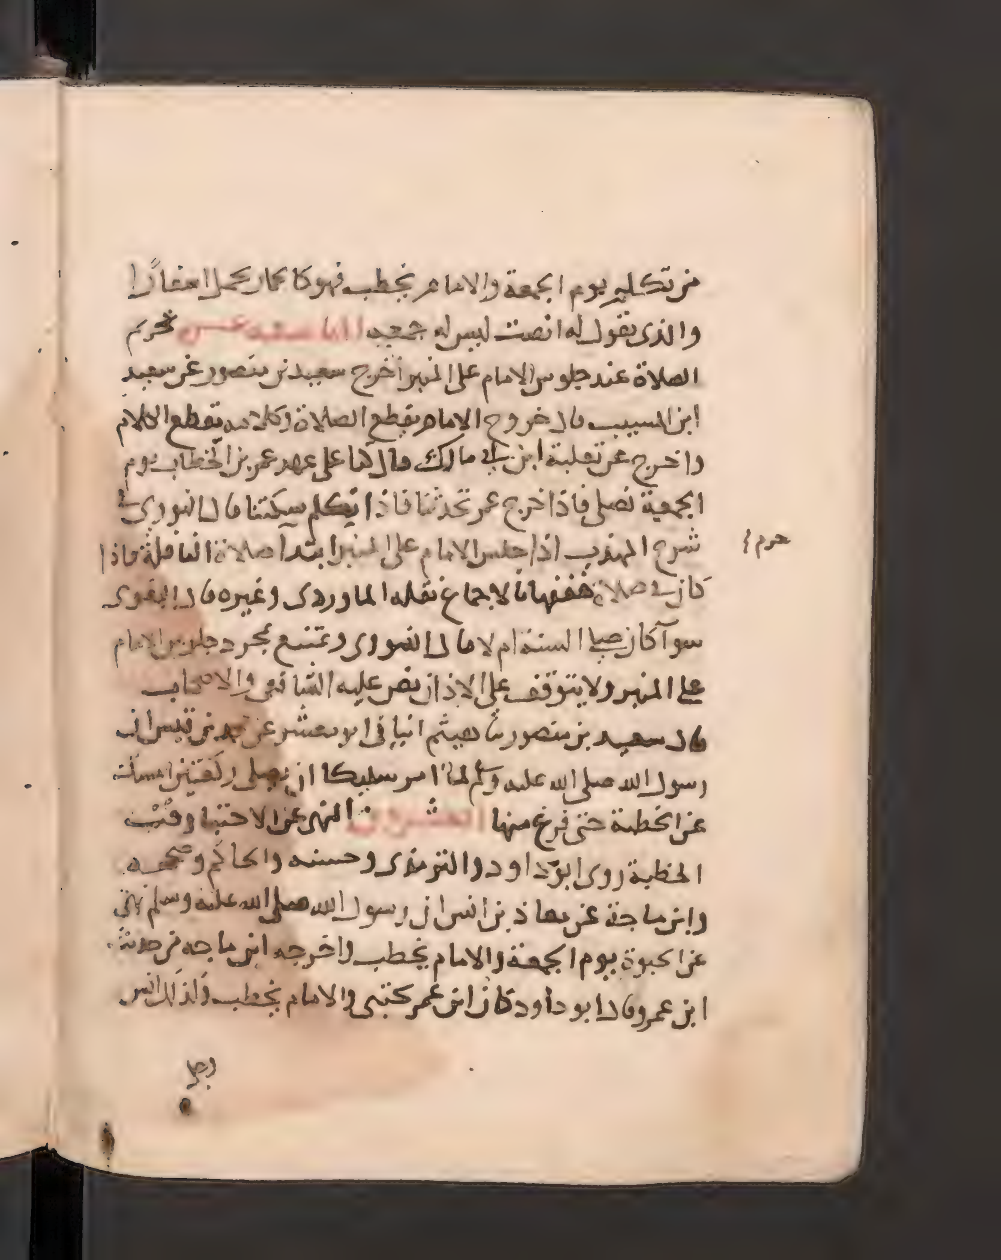 من تكلم يوم الجمعة والامام يخطب فهو كالحمار يحمل اسفارًا
والذى يقول له انصت ليس له جمعه التاسعه عشر تحريم
الصلاة عند جلوس الامام على المنبر اخرج سعيد بن منصور عن سعيد
ابن المسيب قال خروج الامام يقطع الصلاة وكلامه يقطع الكلام
واخرج عن ثعلبة ابن ابي مالك قال كنا على عهد عمر بن الخطاب يوم
الجمعة نصلى فاذا خرج عمر تحدثنا فاذا تكلم سكتنا قال النووى فى
شرح المهذب اذا جلس الامام على المنبر ابتدآ صلاة النافلة فاذا
حرم
كان فى صلاة خففها بالاجماع نقله الماوردى وغيره قال البغوى
سوآ كان صلى السنة ام لا قال النووى ويمتنع بمجرد جلوس الامام
على المنبر ولا يتوقف على الاذان نص عليه الشافعى والاصحاب
قال سعيد بن منصور ثنا هيثم انبانى ابو معشر عن محمد بن قيس ان
رسول الله صلى الله عليه وسلم لما امر سليكا ان يصلى ركعتين امسك
عن الخطبة حتى فرغ منها العشرون النهى عن الاحتبا وقت
الخطبة روى ابو داود والترمذى وحسنه والحاكم وصححه
وابن ماجة عن معاذ بن انس ان رسول الله صلى الله عليه وسلم نهى
عن الحبوة يوم الجمعة والامام يخطب واخرجه ابن ماجه من حديث
ابن عمرو قال ابو داود كان ابن عمر يحتبى والامام يخطب وكذلك انس